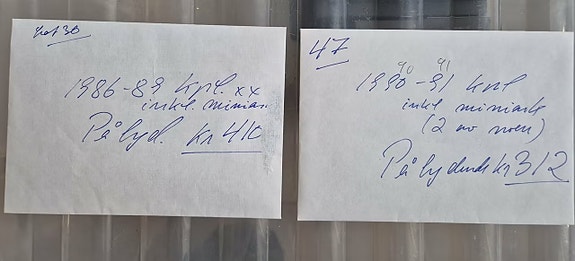 1986-89 Kpl. xx
inkl. minias.
Pålyd. Kr 410
47
90 91
1990-91 Kpl
inkl miniark
(2 av noen)
Pålydende Kr 312